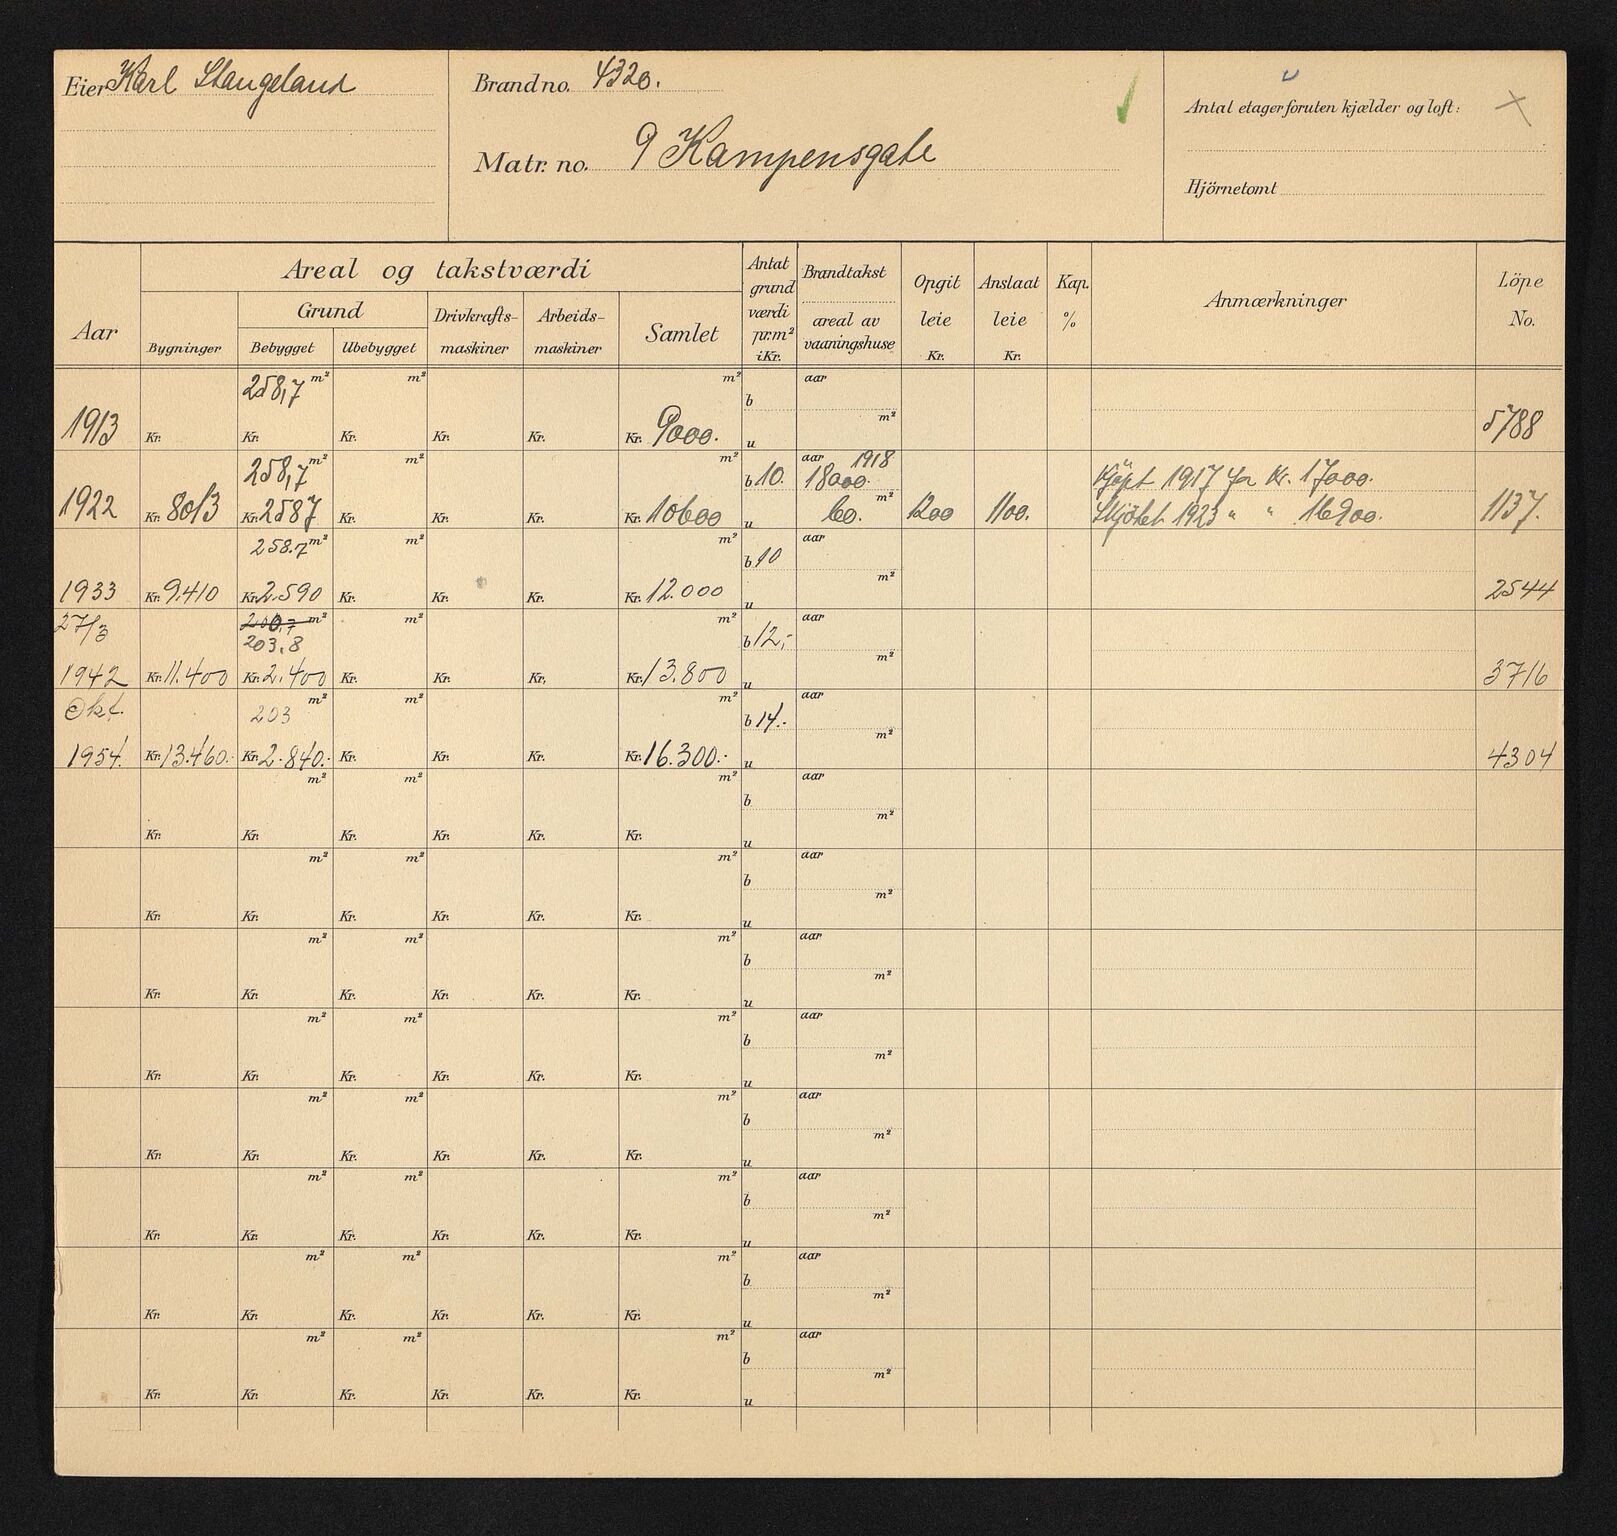 Eier Karl Stangeland
Brand no. 4320.
Matr. no. 9 Kampensgate
Antal etager foruten kjælder og loft:
Hjörnetomt
Aar
Areal og takstværdi
Bygninger
Grund
Bebygget
Ubebygget
Drivkrafts-
maskiner
Arbeids-
maskiner
Samlet
Antat
grund
værdi
pr. m²
i Kr.
Brandtakst
areal av
vaaningshuse
Opgit
leie
Kr.
Anslaat
leie
Kr.
Kap.
%
Anmærkninger
Löpe
No.
258,7 m² m² m² b aar m²
1913 Kr. Kr. Kr. Kr. Kr. Kr. 9000. u 5788
258,7 m² m² m² b 10. aar 1918 18000. Kjöpt 1917 for Kr. 17000.
1922 Kr. 8013 Kr. 2587 Kr. Kr. Kr. Kr. 10600 u 60. m² 1200 1100. Skjötet 1923 " " 16900. 1137.
258.7 m² m² m² b 10 aar m²
1933 Kr. 9.410 Kr. 2.590 Kr. Kr. Kr. Kr. 12.000 u 2544
27/3 m² m² m² b 12,- aar m²
203.8
1942 Kr. 11.400 Kr. 2.400 Kr. Kr. Kr. Kr. 13.800 u 3716
Okt. 203 m² m² m² b 14.- aar m²
1954. Kr. 13.460.- Kr. 2.840.- Kr. Kr. Kr. Kr. 16.300.- u 4304
m² m² m² b aar m²
Kr. Kr. Kr. Kr. Kr. Kr. u
m² m² m² b aar m²
Kr. Kr. Kr. Kr. Kr. Kr. u
m² m² m² b aar m²
Kr. Kr. Kr. Kr. Kr. Kr. u
m² m² m² b aar m²
Kr. Kr. Kr. Kr. Kr. Kr. u
m² m² m² b aar m²
Kr. Kr. Kr. Kr. Kr. Kr. u
m² m² m² b aar m²
Kr. Kr. Kr. Kr. Kr. Kr. u
m² m² m² b aar m²
Kr. Kr. Kr. Kr. Kr. Kr. u
m² m² m² b aar m²
Kr. Kr. Kr. Kr. Kr. Kr. u